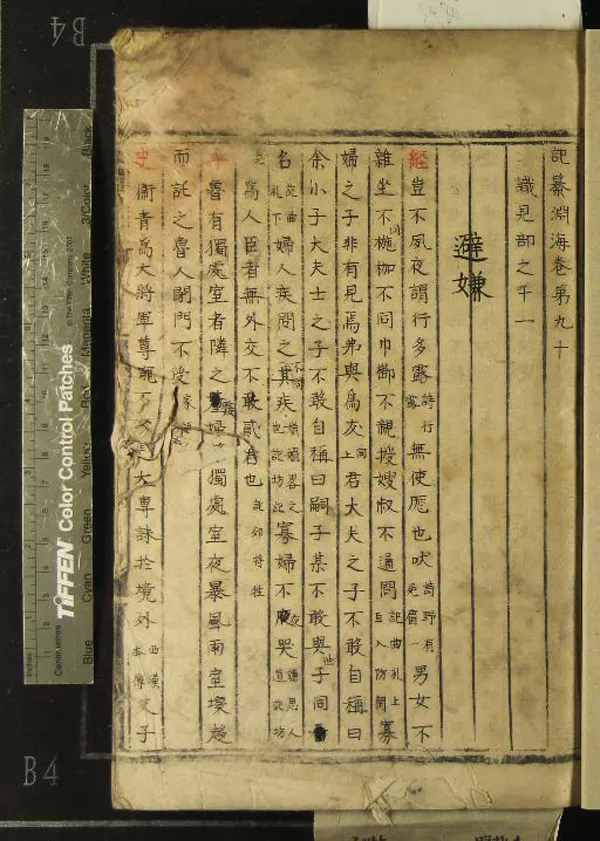 記纂淵海卷第九十
識見部之千一
避嫌
經豈不夙夜謂行多露詩行露無使尨也吠詩野有死麕一男女不
雜坐不施枷不同巾櫛不親授嫂叔不通問記曲礼上寡
婦之子非有見焉弗與為友同上君大夫之子不敢自稱曰
余小子大夫士之子不敢自稱曰嗣子某不敢與世子同
名記曲礼下婦人疾問之不問其疾寡婦不夜哭
為人臣者無外交不敢貳君也記郊特牲
魯有獨處室者隣之婦獨處室夜暴風雨室壞趨
而託之魯人閉門不受家
史衛青為大將軍尊大專誅扵境外西漢本傳文子
B4
B4
TIFFEN Color Control Patches
© The Tiffen Company, 2007
Blue Cyan Green Yellow Red Magenta White 3/Color Black
Inches
Centimetres